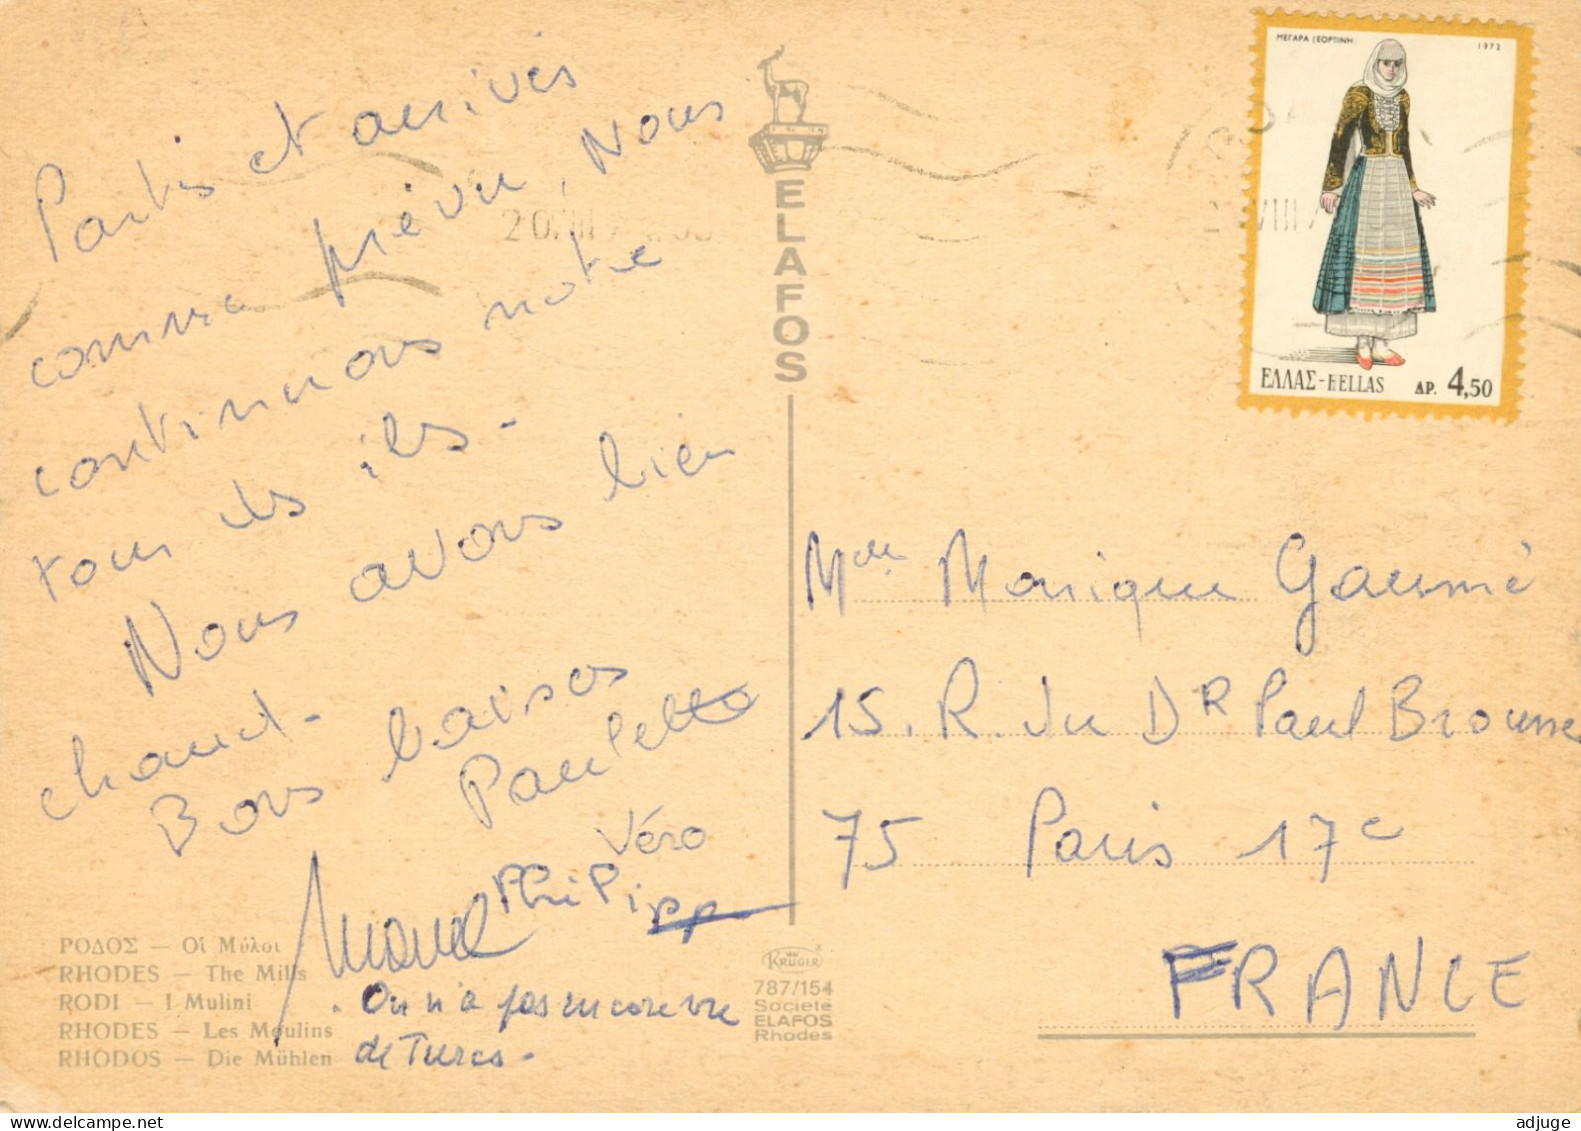 Partis et arrivés
comme prévu, Nous
continuons notre
tour des iles.
Nous avons bien
chaud.
Bons baisers
Paulette
Véro
PhiPipp
Marcel
. On n'a pas encore vu
de Turcs.
ΡΟΔΟΣ — Οἱ Μύλοι
RHODES — The Mills
RODI — I Mulini
RHODES — Les Moulins
RHODOS — Die Mühlen
ELAFOS
KRÜGER
787/154
Société
ELAFOS
Rhodes
ΜΕΓΑΡΑ (ΕΟΡΤΙΝΗ)
1972
ΕΛΛΑΣ-HELLAS ΔΡ. 4,50
Mlle Monique Gaumé
15. R. du DR Paul Brousse
75 Paris 17e
FRANCE
adjuge